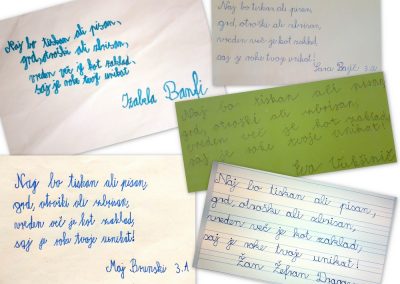 Naj bo tiskan ali pisan,
grd, otroški ali zbrisan,
vreden več je kot zaklad,
saj je roke tvoje unikat
Izabela Banfi
Naj bo tiskan ali pisan,
grd, otroški ali zbrisan,
vreden več je kot zaklad,
saj je roke tvoje unikat!
3.a
Naj bo tiskan ali pisan,
grd, otroški ali zbrisan,
vreden več je kot zaklad,
saj je roke tvoje unikat!
Eva
Naj bo tiskan ali pisan,
grd, otroški ali zbrisan,
vreden več je kot zaklad,
saj je roke tvoje unikat!
Maj Brunski 3.A
Naj bo tiskan ali pisan,
grd, otroški ali zbrisan,
vreden več je kot zaklad,
saj je roke tvoje unikat!
Žan Žefran